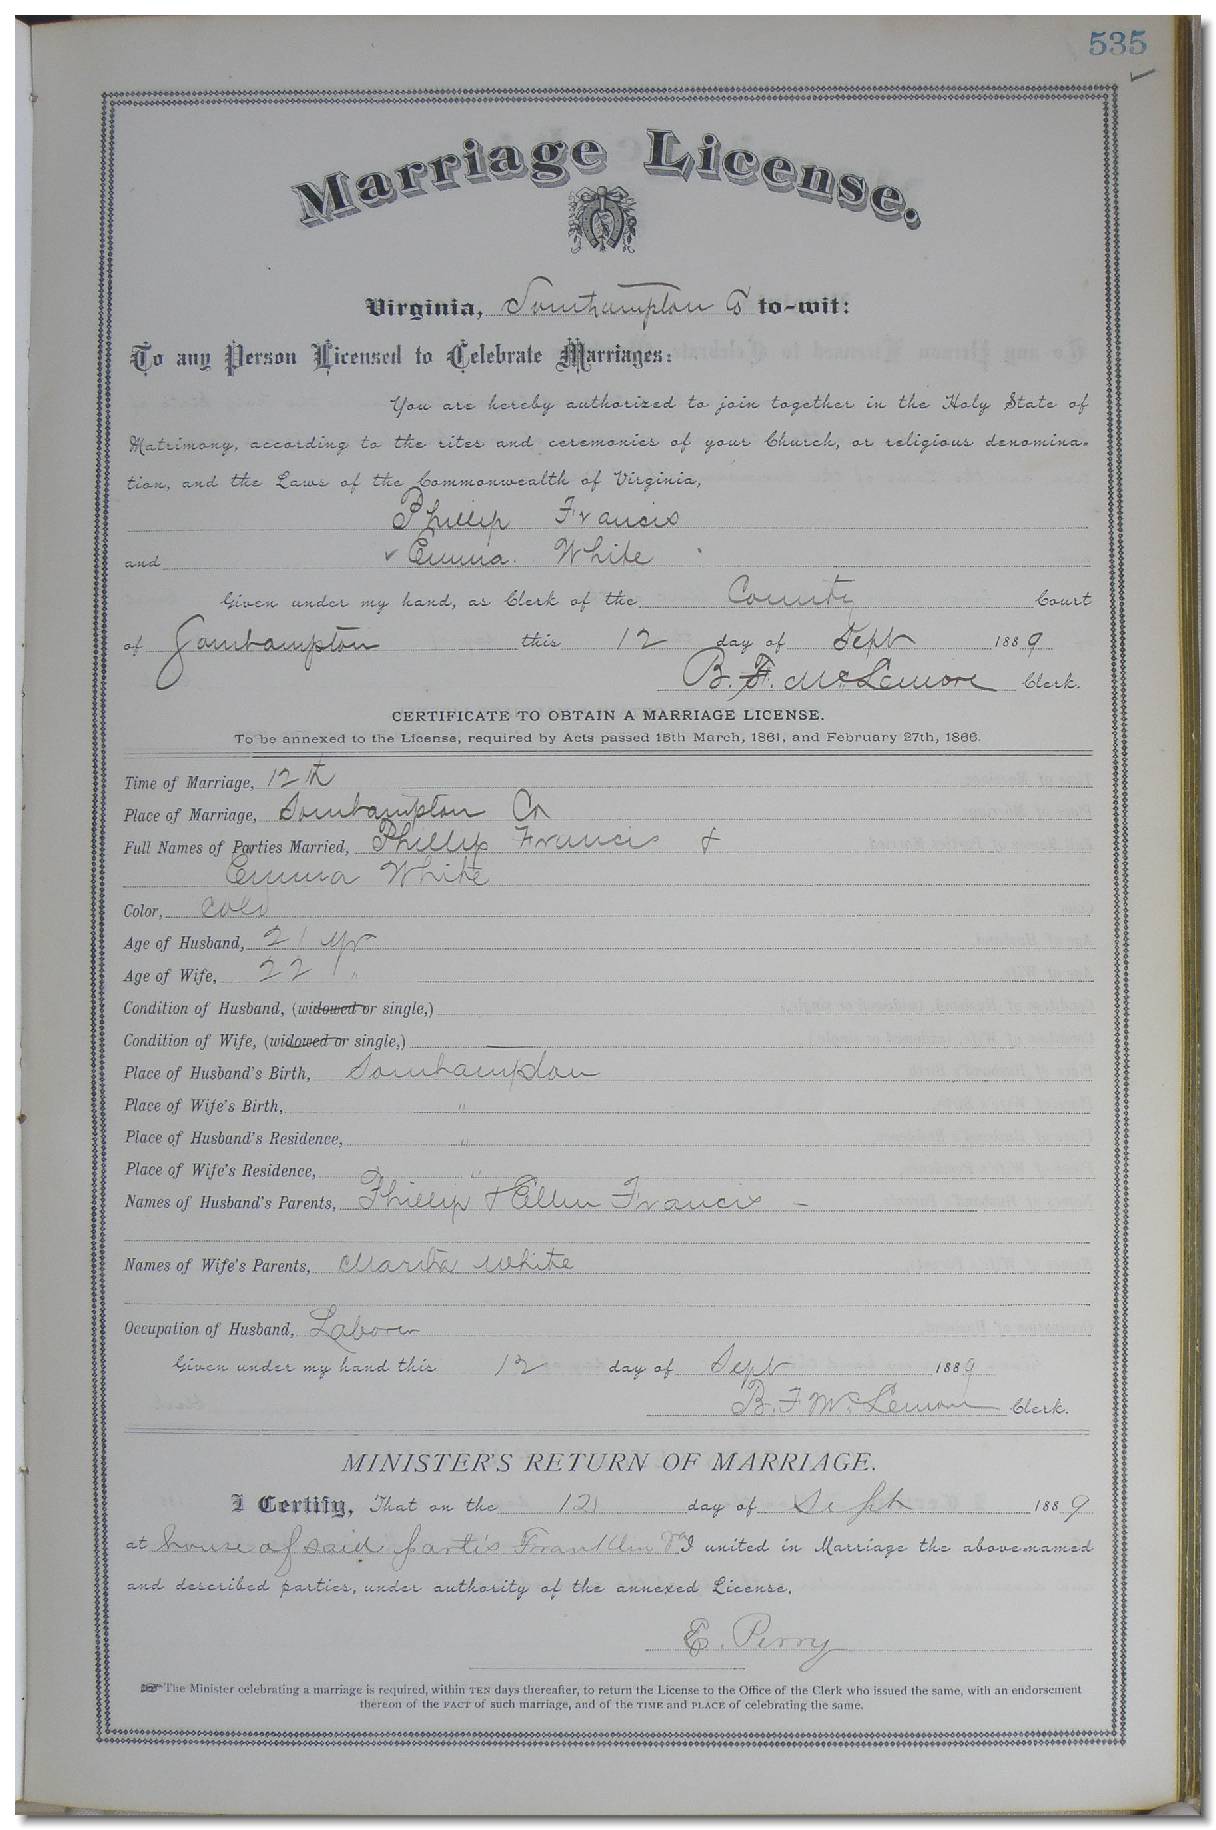 535
Marriage License.
Virginia, Southampton Co to-wit:
To any Person Licensed to Celebrate Marriages:
You are hereby authorized to join together in the Holy State of
Matrimony, according to the rites and ceremonies of your Church, or religious denomina-
tion, and the Laws of the Commonwealth of Virginia,
Phillip Francis
and Emma White
Given under my hand, as Clerk of the County Court
of Southampton this 12 day of Sept 1889
B. F. McLemore Clerk.
CERTIFICATE TO OBTAIN A MARRIAGE LICENSE.
To be annexed to the License, required by Acts passed 15th March, 1861, and February 27th, 1866.
Time of Marriage, 12th
Place of Marriage, Southampton Co
Full Names of Parties Married, Phillip Francis &
Emma White
Color, Cold
Age of Husband, 21 yr
Age of Wife, 22 "
Condition of Husband, (widowed or single,)
Condition of Wife, (widowed or single,)
Place of Husband's Birth, Southampton
Place of Wife's Birth, "
Place of Husband's Residence, "
Place of Wife's Residence, "
Names of Husband's Parents, Phillip & Ellen Francis -
Names of Wife's Parents, White
Occupation of Husband, Laborer
Given under my hand this 12 day of Sept 1889
B. F. McLemore Clerk.
MINISTER'S RETURN OF MARRIAGE.
I Certify, That on the 12 day of Sept 1889
at house of said parties Franklin Va I united in Marriage the above-named
and described parties, under authority of the annexed License.
E. Perry
☞ The Minister celebrating a marriage is required, within TEN days thereafter, to return the License to the Office of the Clerk who issued the same, with an endorsement
thereon of the FACT of such marriage, and of the TIME and PLACE of celebrating the same.